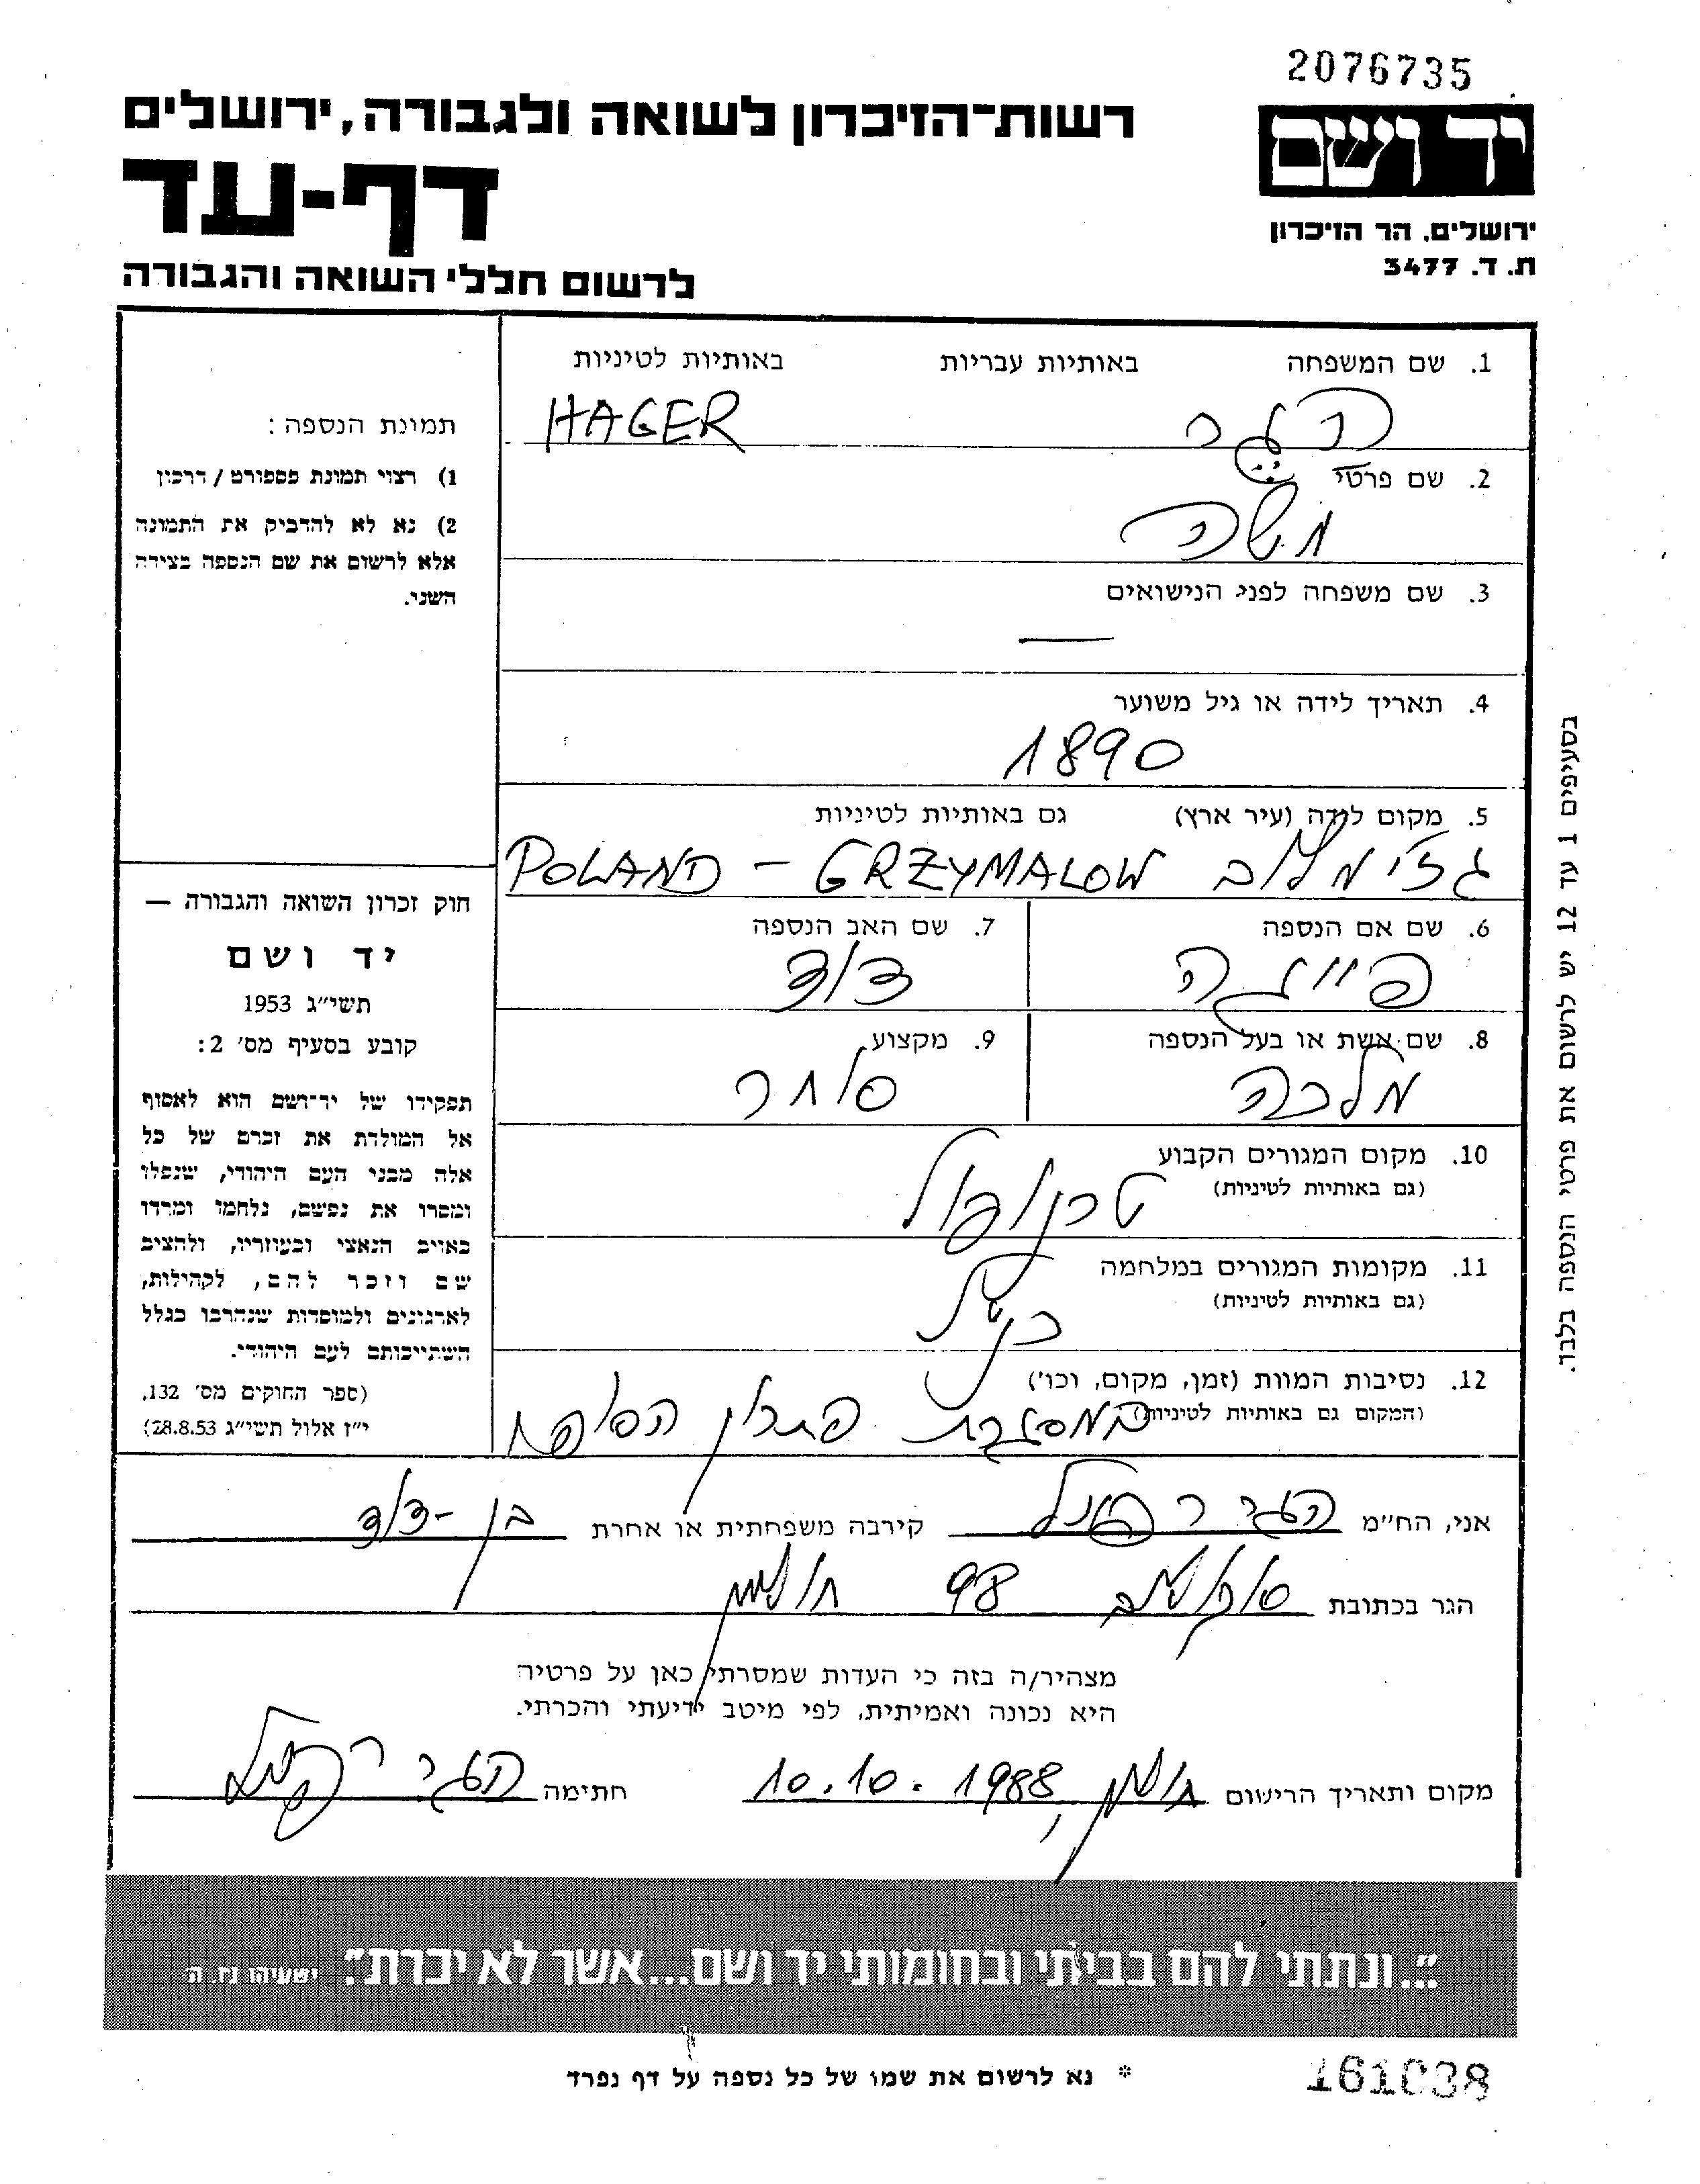 2076735
יד ושם
ירושלים. הר הזיכרון
ת. ד. 3477
רשות־הזיכרון לשואה ולגבורה, ירושלים
דף-עד
לרשום חללי השואה והגבורה
1. שם המשפחה באותיות עבריות באותיות לטיניות
הגר HAGER
2. שם פרטי
משה
3. שם משפחה לפני הנישואים
—
4. תאריך לידה או גיל משוער
1890
5. מקום לידה (עיר ארץ) גם באותיות לטיניות
גז'ימלוב POLAND - GRZYMALOW
6. שם אם הנספה
פייגה
7. שם האב הנספה
דוד
8. שם אשת או בעל הנספה
מלכה
9. מקצוע
סוחר
10. מקום המגורים הקבוע
(גם באותיות לטיניות)
טרנופול
11. מקומות המגורים במלחמה
(גם באותיות לטיניות)
כנ"ל
12. נסיבות המוות (זמן, מקום, וכו')
(המקום גם באותיות לטיניות)
במסגרת פתרון הסופי
אני, הח״מ הגר קירבה משפחתית או אחרת בן-דוד
הגר בכתובת 98 חולון
מצהיר/ה בזה כי העדות שמסרתי כאן על פרטיה
היא נכונה ואמיתית, לפי מיטב ידיעתי והכרתי.
מקום ותאריך הרישום חולון, 10.10.1988 חתימה הגר
תמונת הנספה:
1) רצוי תמונת פספורט / דרכון
2) נא לא להדביק את התמונה
אלא לרשום את שם הנספה בצידה
השני.
חוק זכרון השואה והגבורה —
יד ושם
תשי״ג 1953
קובע בסעיף מס׳ 2:
תפקידו של יד־ושם הוא לאסוף
אל המולדת את זכרם של כל
אלה מבני העם היהודי, שנפלו
ומסרו את נפשם, נלחמו ומרדו
באויב הנאצי ובעוזריו, ולהציב
שם וזכר להם, לקהילות,
לארגונים ולמוסדות שנהרבו בגלל
השתייכותם לעם היהודי.
(ספר החוקים מס׳ 132,
י״ז אלול תשי״ג 28.8.53)
בסעיפים 1 עד 12 יש לרשום את פרטי הנספה בלבד.
"...ונתתי להם בביתי ובחומותי יד ושם...אשר לא יכרת". ישעיהו נו. ה
* נא לרשום את שמו של כל נספה על דף נפרד
161038